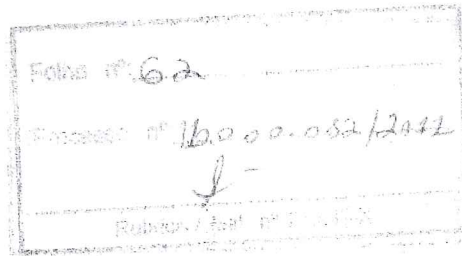 Folha nº 62
Processo nº 16.000.052/2011
Rubrica / Mat. nº